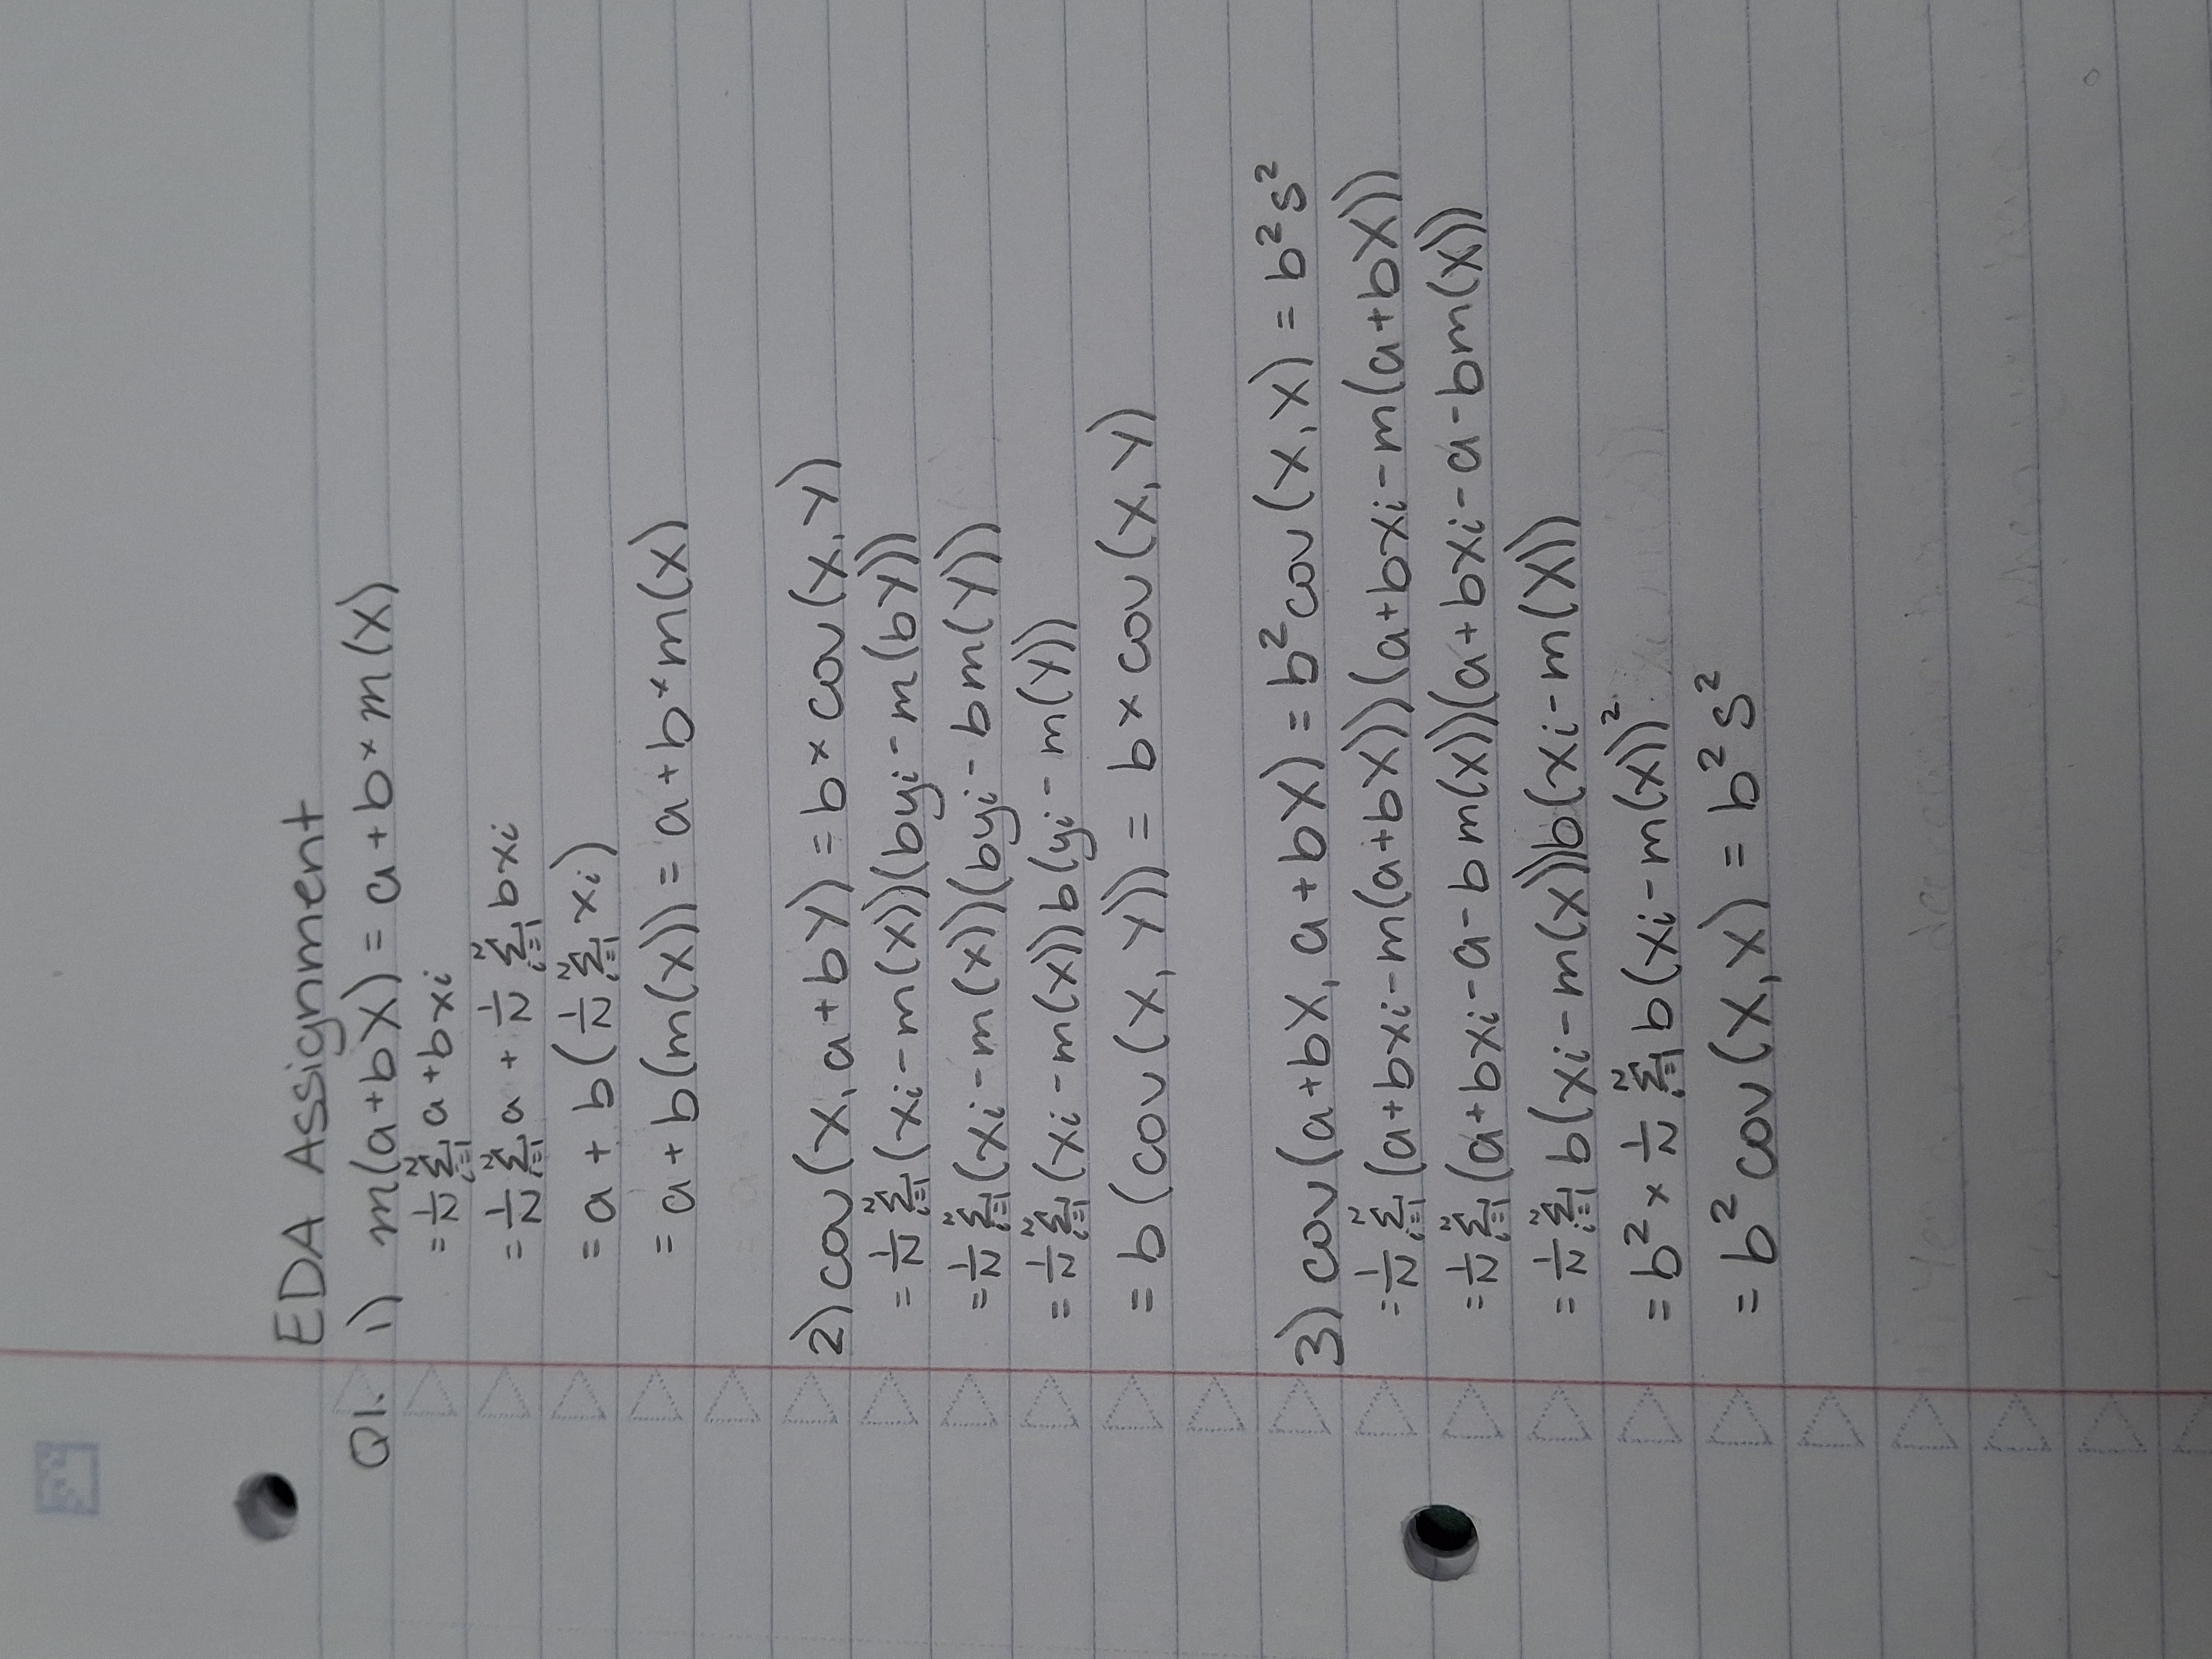 EDA Assignment
Q1. 1) m(a+bX) = a+b×m(X)
= 1/N Σ_{i=1}^{N} a+bxi
= 1/N Σ_{i=1}^{N} a + 1/N Σ_{i=1}^{N} bxi
= a + b(1/N Σ_{i=1}^{N} xi)
= a+b(m(x)) = a+b×m(X)
2) cov(X, a+bY) = b×cov(X,Y)
= 1/N Σ_{i=1}^{N} (xi-m(x))(byi-m(bY))
= 1/N Σ_{i=1}^{N} (xi-m(x))(byi-bm(Y))
= 1/N Σ_{i=1}^{N} (xi-m(x))b(yi-m(Y))
= b(cov(X,Y)) = b×cov(X,Y)
3) cov(a+bX, a+bX) = b²cov(X,X) = b²s²
= 1/N Σ_{i=1}^{N} (a+bxi-m(a+bX))(a+bxi-m(a+bX))
= 1/N Σ_{i=1}^{N} (a+bxi-a-bm(x))(a+bxi-a-bm(x))
= 1/N Σ_{i=1}^{N} b(xi-m(x))b(xi-m(X))
= b² × 1/N Σ_{i=1}^{N} b(xi-m(x))²
= b² cov(X,X) = b²s²